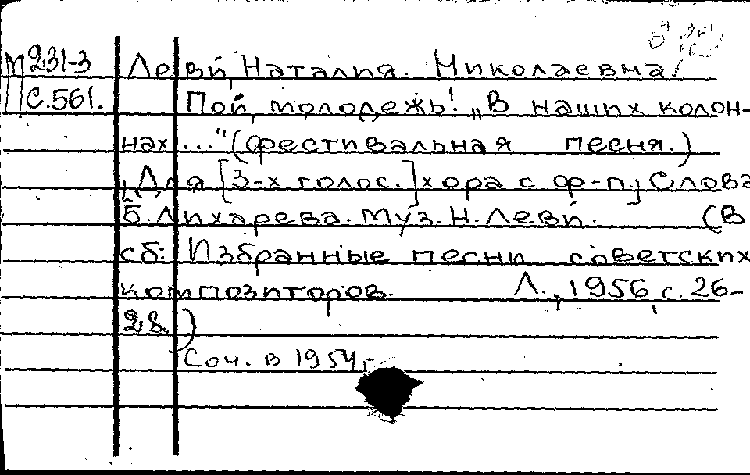 М231-3 Леви, Наталия Николаевна
С.561. Пой, молодежь! „В наших колон-
нах..." (Фестивальная песня.)
Для [3-х голос.] хора с ф-п. Слова
Б. Лихарева. Муз. Н. Леви. (В
сб: Избранные песни советских
композиторов. Л., 1956, с. 26-
28.)
Соч. в 1954 г.